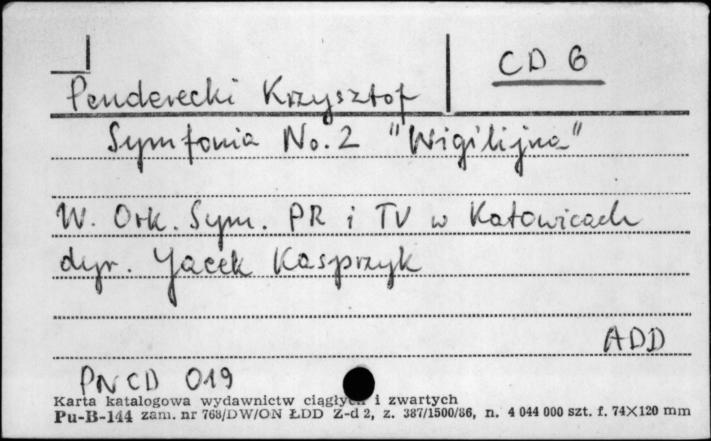 CD 6
Penderecki Krzysztof
Symfonia No. 2 "Wigilijna"
W. Ork. Sym. PR i TV w Katowicach
dyr. Jacek Kasprzyk
ADD
PNCD 019
Karta katalogowa wydawnictw ciągłych i zwartych
Pu-B-144 zam. nr 768/DW/ON ŁDD Z-d 2, z. 387/1500/86, n. 4 044 000 szt. f. 74×120 mm